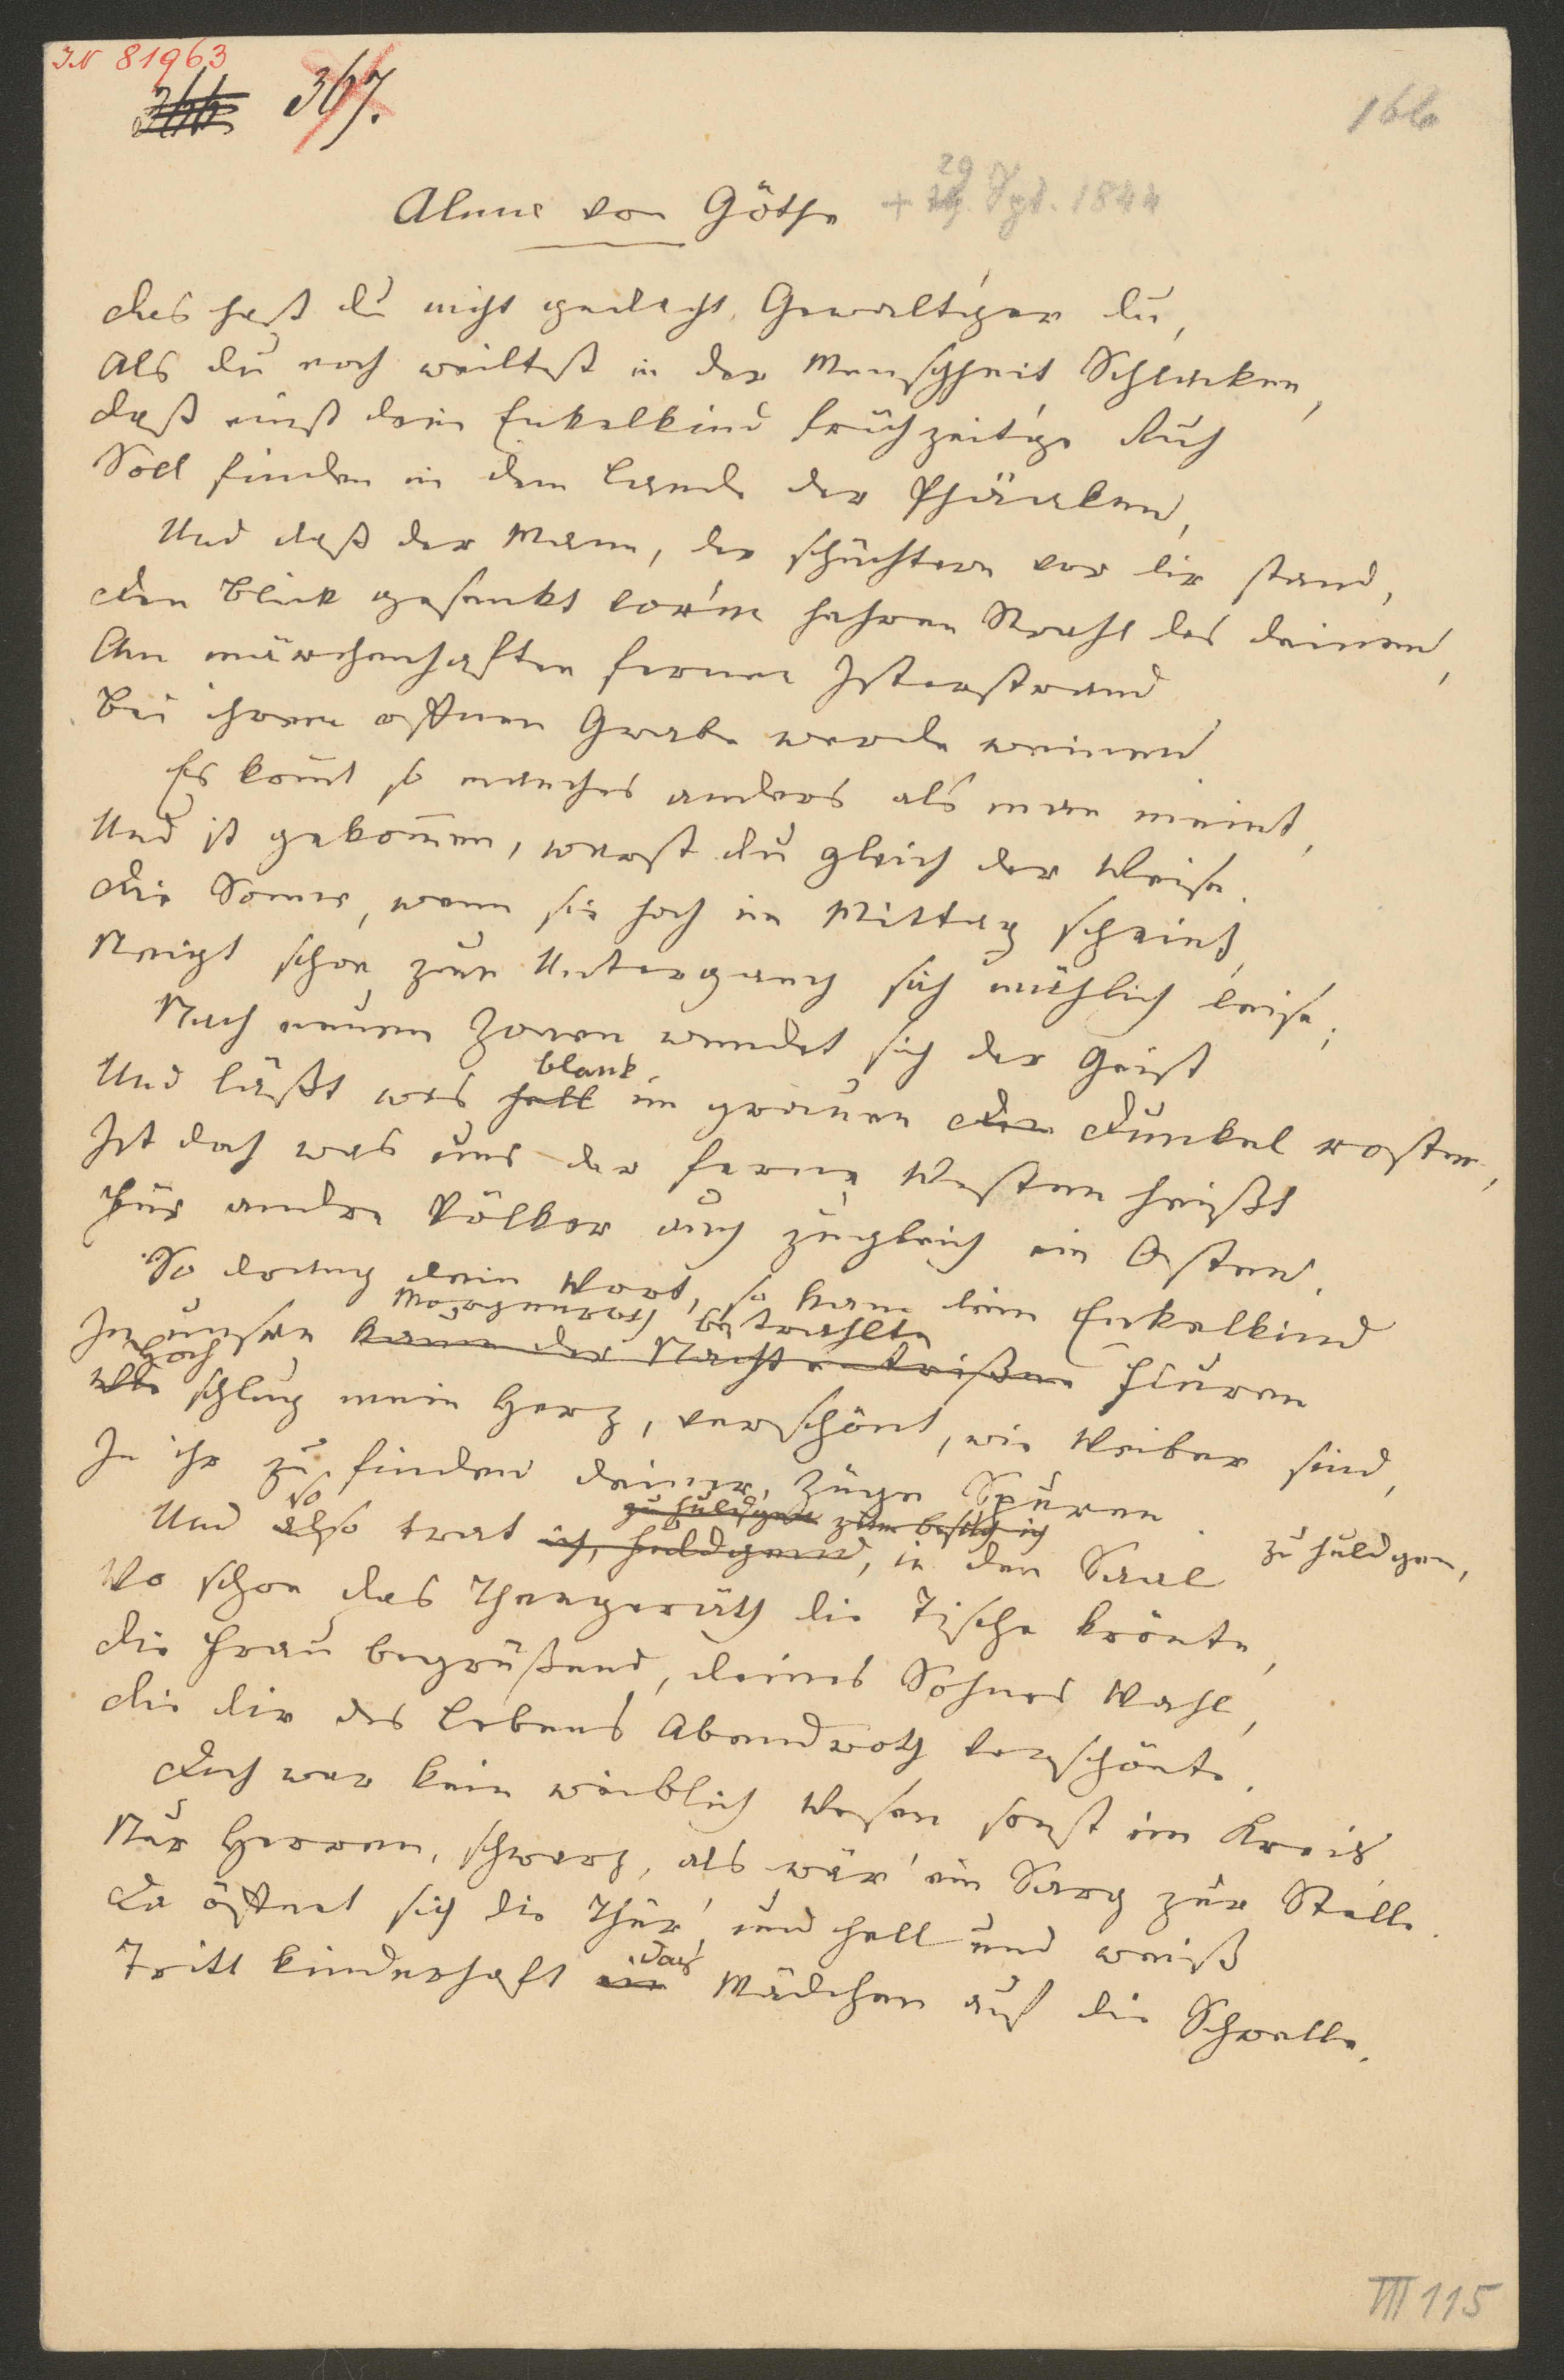 IN 81963
367.
166
Alma von Göthe + 29 Spt. 1844
Das hast du nicht gedacht, Gewaltiger du,
Als du noch weiltest in der Menschheit Schlacken,
Daß einst dein Enkelkind frühzeitige Ruh
Soll finden in dem Lande der Phäaken,
Und daß der Mann, der schüchtern vor dir stand,
Den Blick gesenkt vor'm hehren Strahl des deinen,
Am märchenhaften fernen Isterstrand
Bei ihrem offnen Grabe werde weinen
Es komt so manches anders als man meint,
Und ist gekommen, warst du gleich der Weise.
Die Sonne, wenn sie hoch im Mittag scheint,
Neigt schon zum Untergang sich mählich leise;
Nach neuen Zonen wendet sich der Geist
blank
Und läßt was hell im grauen Der Dunkel rosten,
Ist doch was uns der ferne Westen heißt
Für andre Völker auch zugleich ein Osten.
So drang dein Wort, so kam dein Enkelkind
Morgenroth bestrahlte
In unsre kaum der Nacht entrißne Fluren
Hoch
Wie schlug mein Herz, verschönt, wie Weiber sind,
In ihr zu finden deiner Züge Spuren.
so zu huldigen
Und also trat ich, huldigend, in den Saal zu huldgen,
Wo schon das Theegeräth die Tische krönte,
Die Frau begrüßend, deines Sohnes Wahl,
Die dir des Lebens Abendroth verschönte.
Doch war kein weiblich Wesen sonst im Kreis
Nur Herren, schwarz, als wär' ein Sarg zur Stelle.
Da öffnet sich die Thür' und hell und weiß
das
Tritt kinderhaft ein Mädchen auf die Schwelle.
III 115